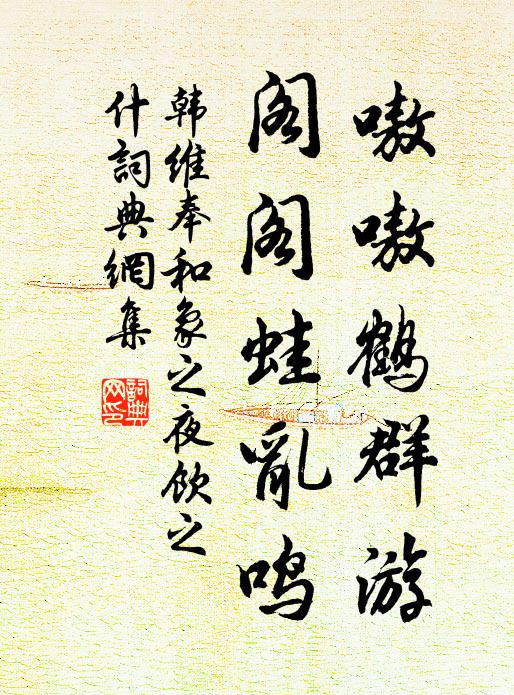 嗷嗷鹤群游
阁阁蛙亂鸣
韩维奉和象之夜饮之
什詞典網集
詞典
网印